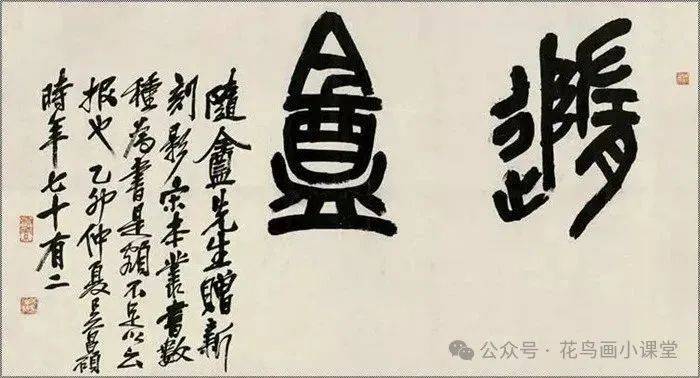 隨盦
隨盦先生贈新
刻影宋本叢書數
種為書是額不足以云
报也乙卯仲夏吴昌碩
時年七十有二
公众号·花鸟画小课堂